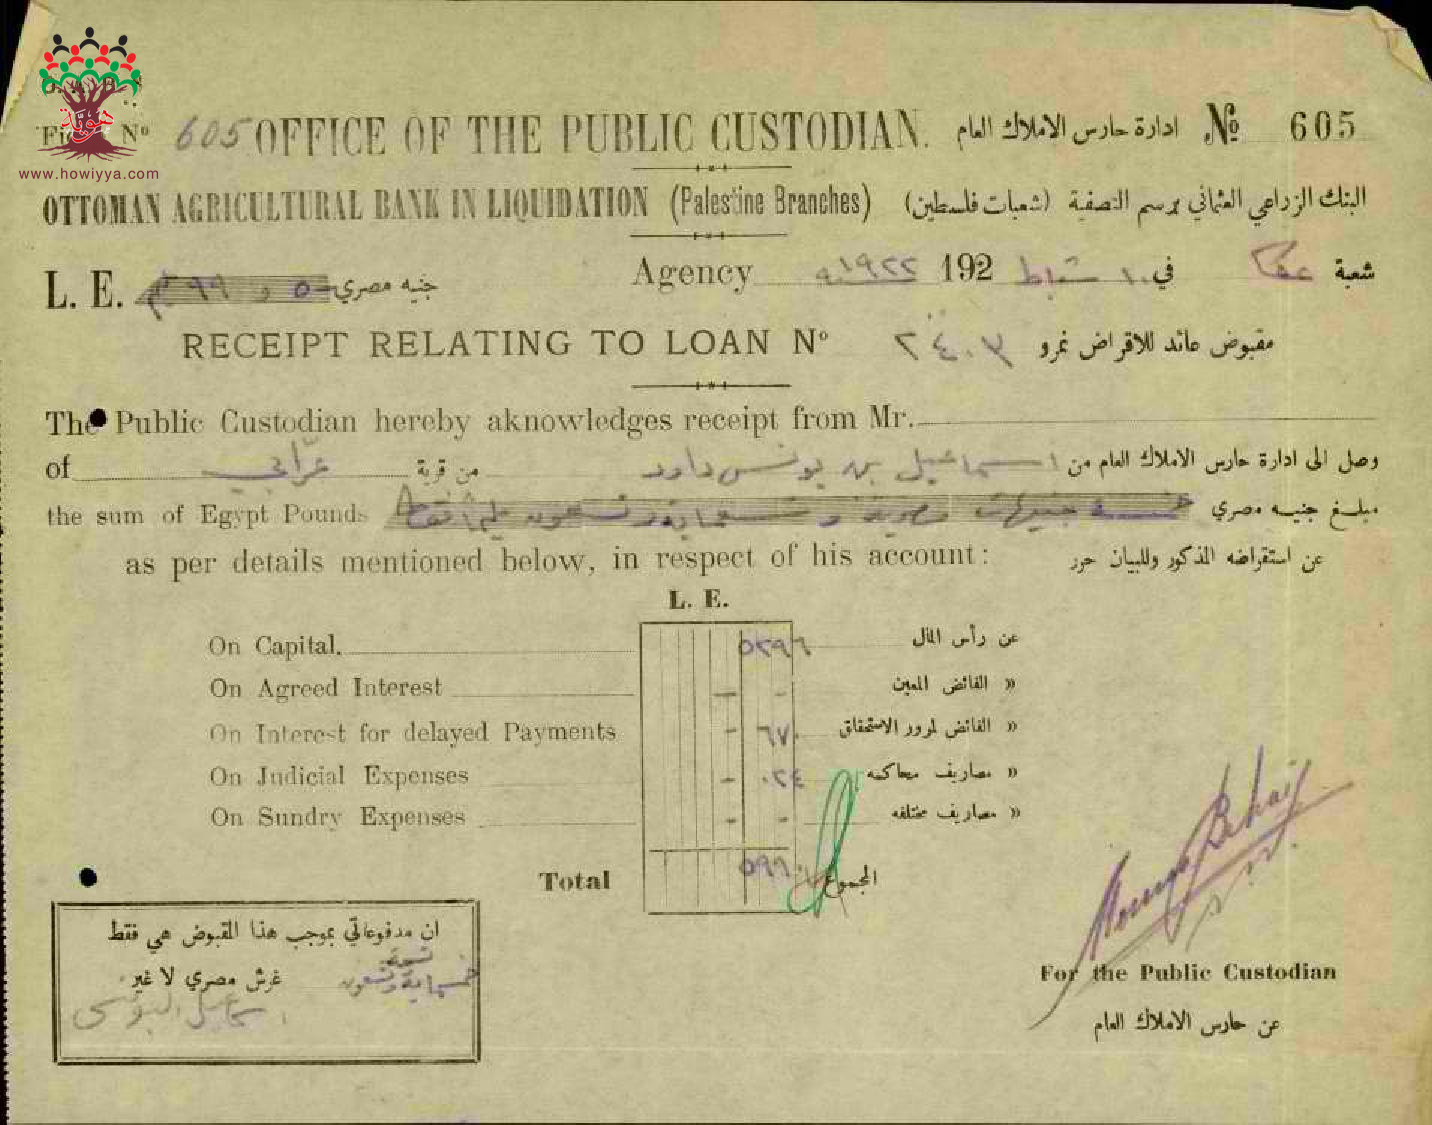 هوية
www.howiyya.com
Nº 605
OFFICE OF THE PUBLIC CUSTODIAN. ادارة حارس الاملاك العام Nº 605
OTTOMAN AGRICULTURAL BANK IN LIQUIDATION (Palestine Branches) البنك الزراعي العثماني برسم التصفية (شعبات فلسطين)
L. E. جنيه مصري
Agency ١٩٢٢ 192 في ١٠ شباط شعبة عكا
RECEIPT RELATING TO LOAN Nº ٢٤٠٣ مقبوض عائد للاقراض نمرو
The Public Custodian hereby aknowledges receipt from Mr.
وصل الى ادارة حارس الاملاك العام من اسماعيل بن يونس داود
of عرّابي من قرية
the sum of Egypt Pounds مبلغ جنيه مصري خمسة جنيهات مصرية و تسعماية وتسعون مليما فقط
as per details mentioned below, in respect of his account: عن استقراضه المذكور وللبيان حرر
L. E.
On Capital. ٥٢٩٦ عن رأس المال
On Agreed Interest - - » الفائض المعين
On Interest for delayed Payments - ٦٧٠ » الفائض لمرور الاستحقاق
On Judicial Expenses - ٠٢٤ » مصاريف محاكمه
On Sundry Expenses - - » مصاريف مختلفه
Total ٥٩٩٠ المجموع
ان مدفوعاتي بموجب هذا المقبوض هي فقط
خمسماية وتسعة وتسعون غرش مصري لا غير
اسماعيل اليونس
For the Public Custodian
عن حارس الاملاك العام